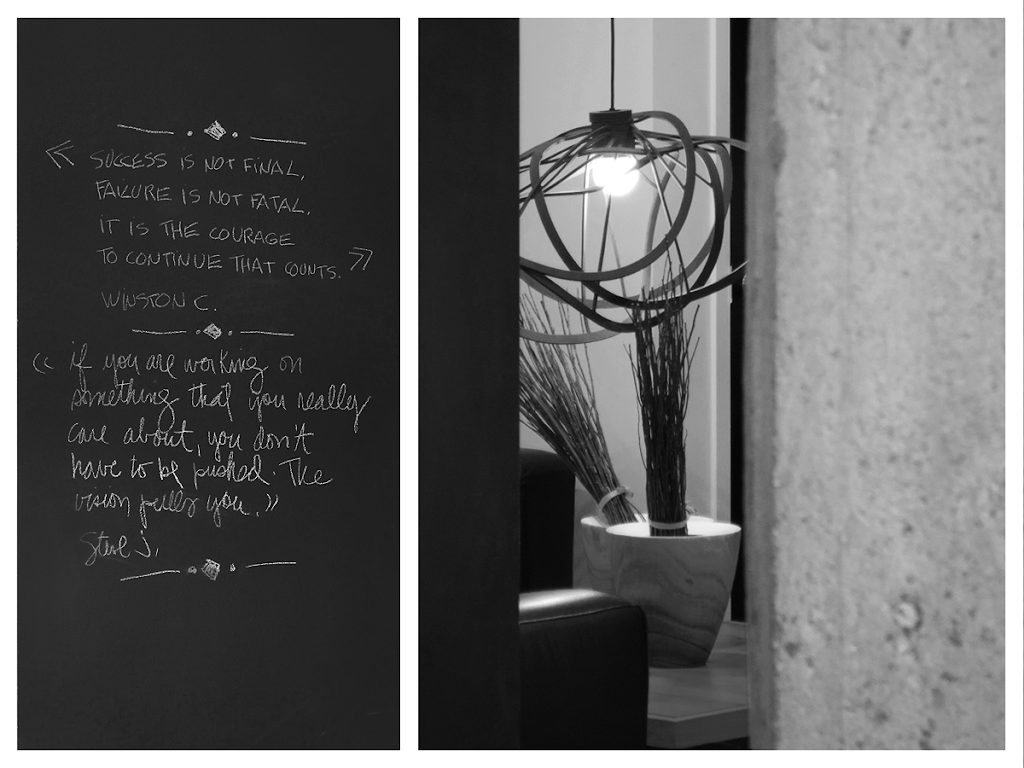 « SUCCESS IS NOT FINAL,
FAILURE IS NOT FATAL.
IT IS THE COURAGE
TO CONTINUE THAT COUNTS. »
WINSTON C.
« if you are working on
something that you really
care about, you don't
have to be pushed. The
vision pulls you. »
Steve J.